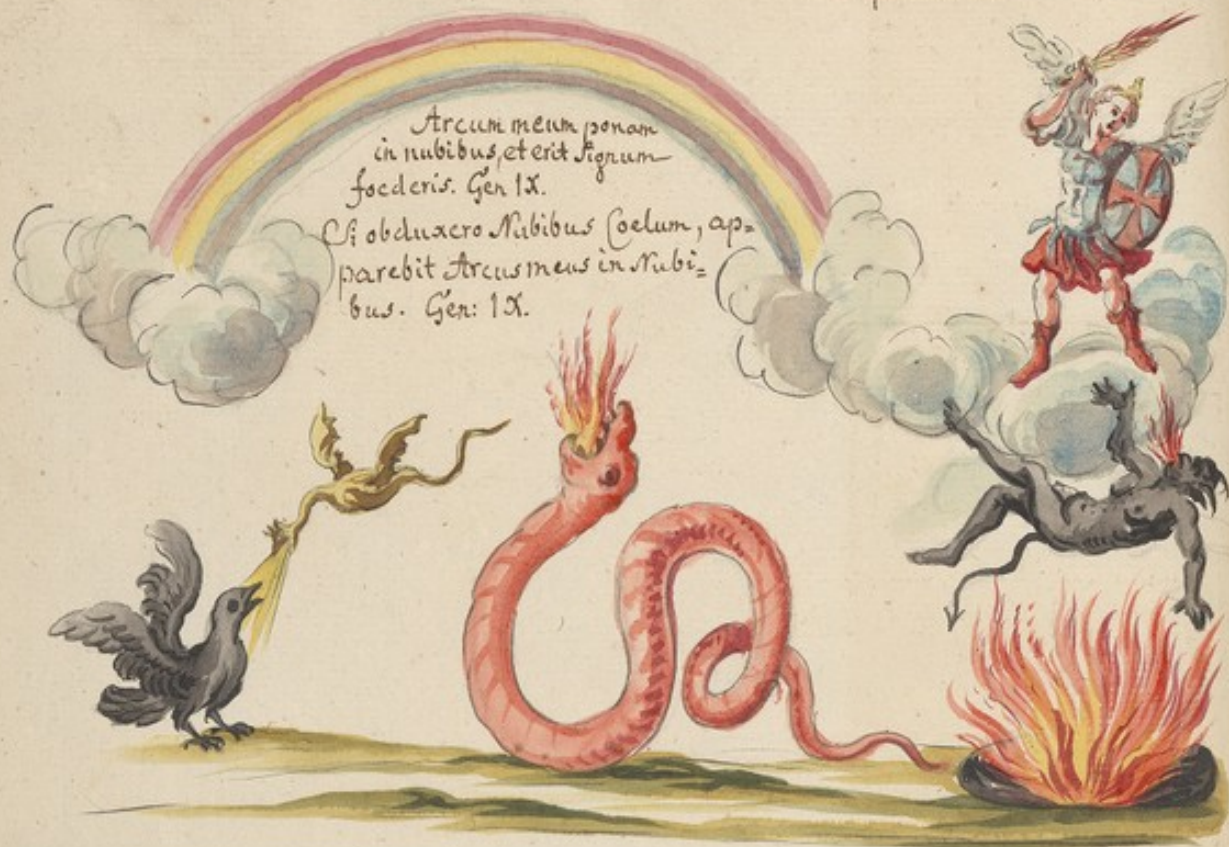 Arcum meum ponam
in nubibus, et erit Signum
foederis. Gen IX.
Si obduxero Nubibus Coelum, ap=
parebit Arcus meus in Nubi=
bus. Gen: IX.